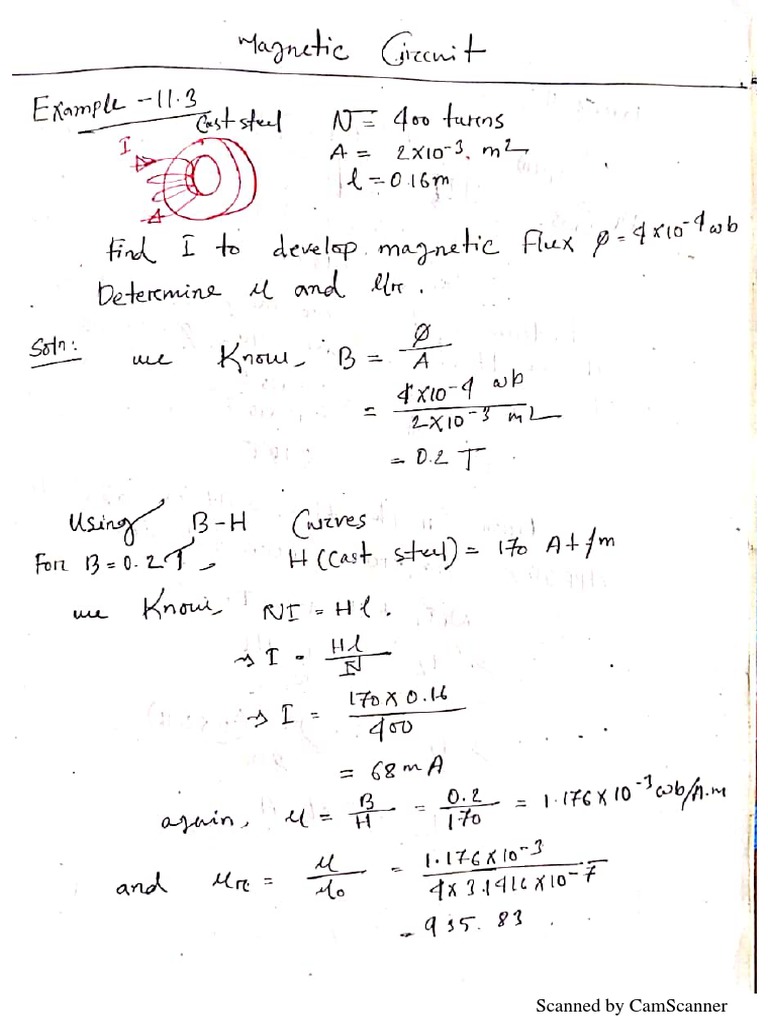 Magnetic Circuit
Example -11.3
Cast steel
I
N = 400 turns
A = 2×10⁻³ m²
l = 0.16m
find I to develop magnetic flux φ = 4×10⁻⁴ wb
Determine μ and μr.
Soln:
we know, B = φ/A
= 4×10⁻⁴ wb / 2×10⁻³ m²
= 0.2 T
Using B-H Curves
For B = 0.2T, H (cast steel) = 170 At/m
we know NI = Hl.
→ I = Hl/N
→ I = 170 × 0.16 / 400
= 68 mA
again, μ = B/H = 0.2/170 = 1.176 × 10⁻³ wb/A.m
and μr = μ/μo = 1.176×10⁻³ / 4×3.1416×10⁻⁷
= 935.83.
Scanned by CamScanner